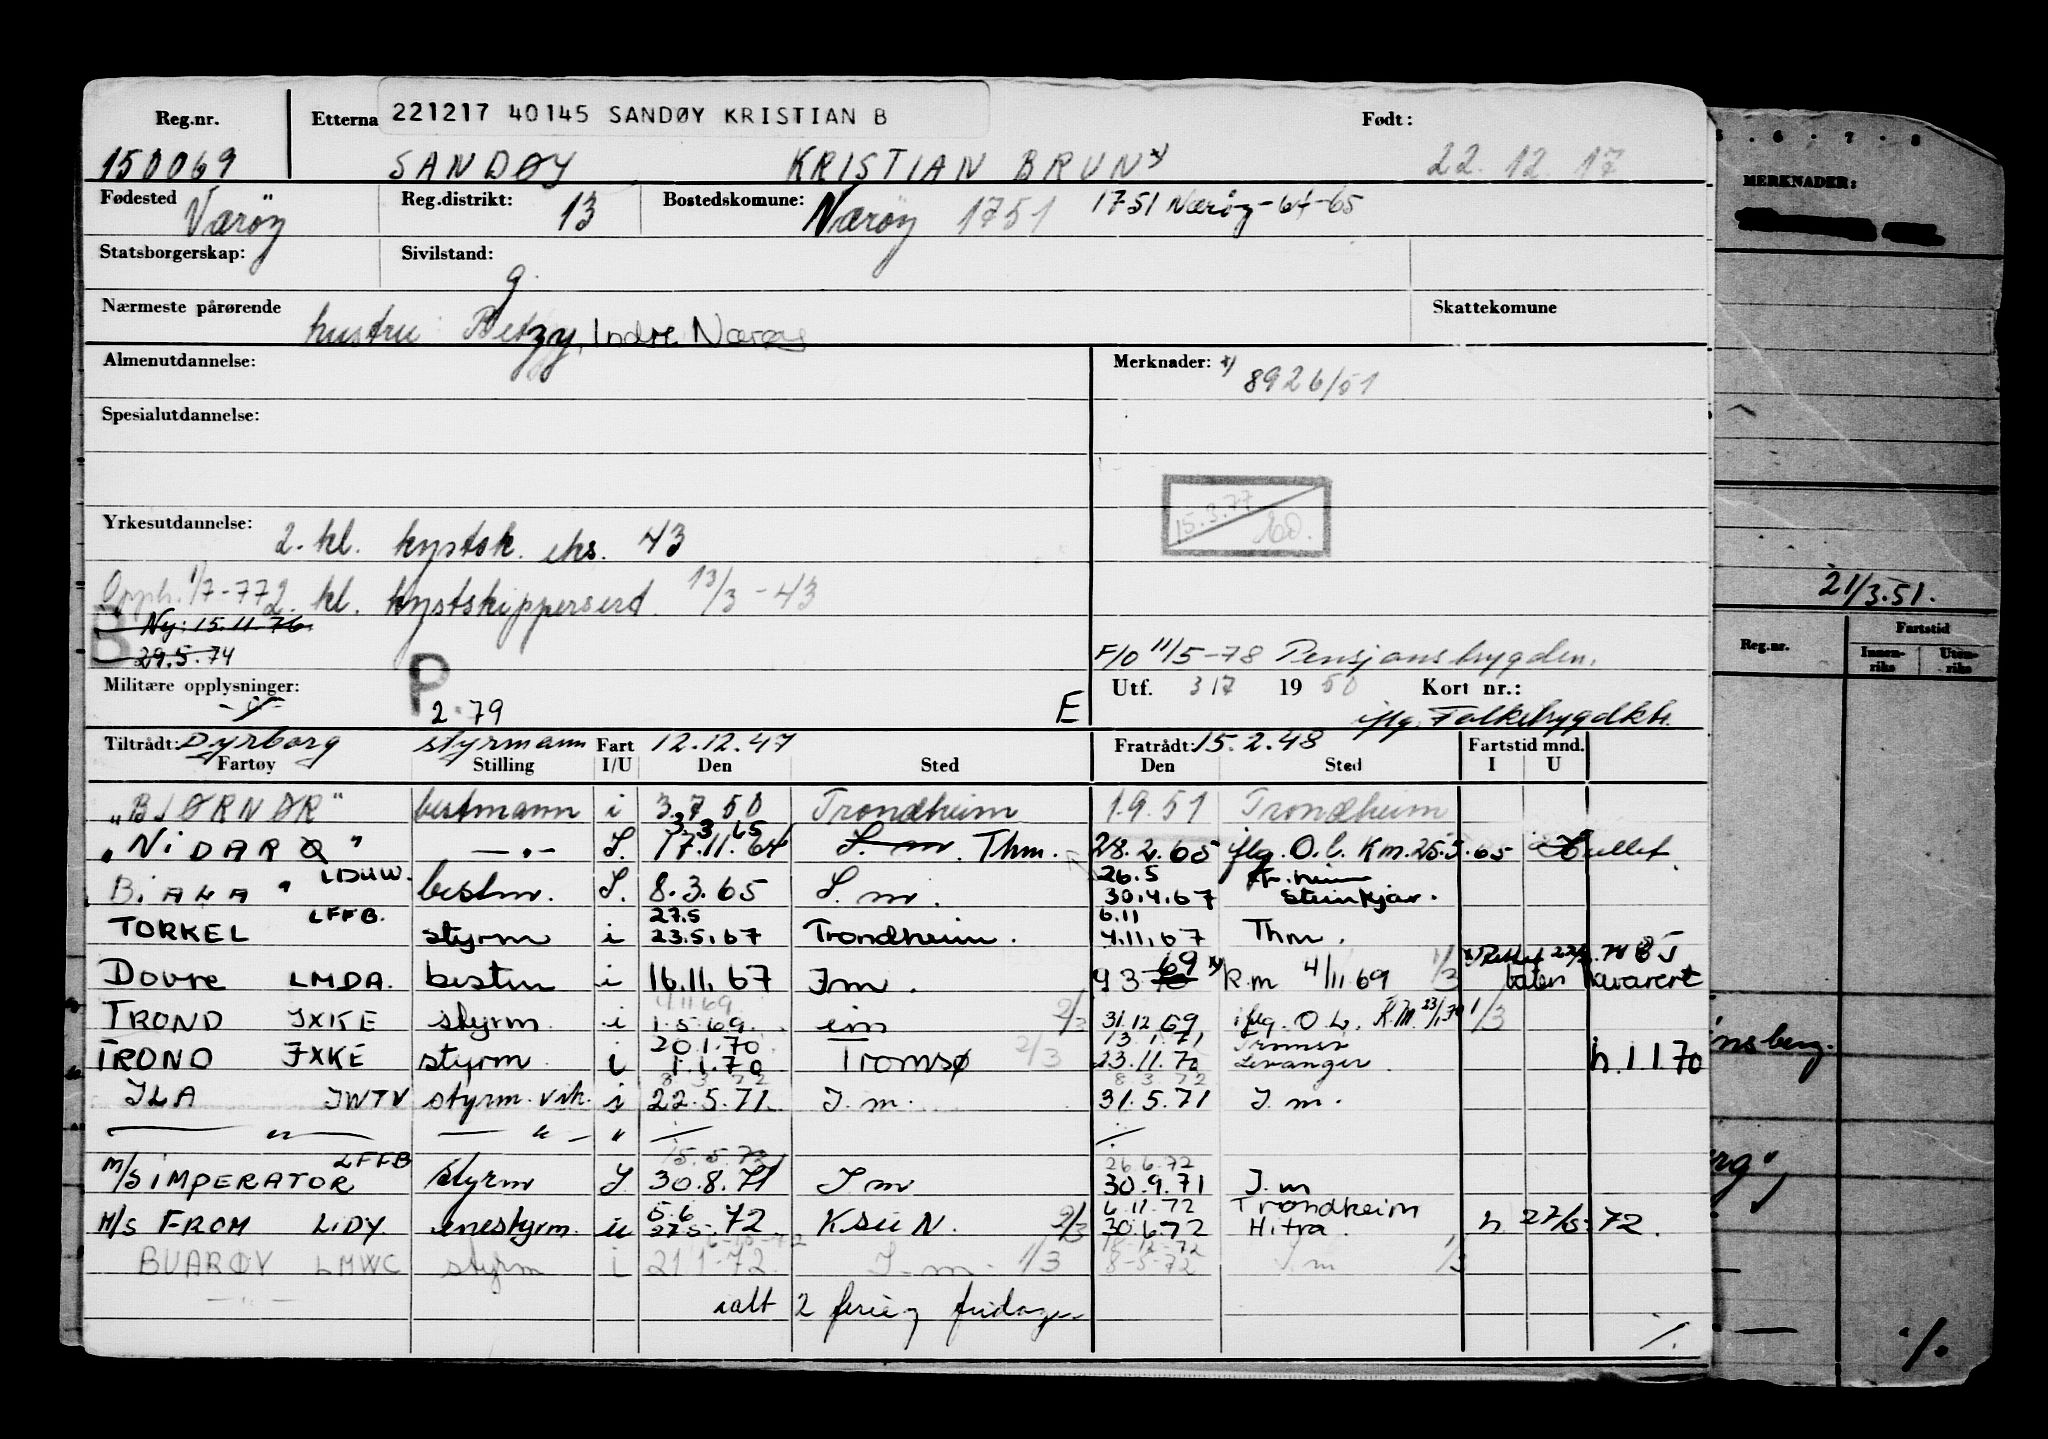 Reg.nr. Etterna 221217 40145 SANDØY KRISTIAN B Født:
150069 SANDØY KRISTIAN BRUN x) 22.12.17
Fødested Værøy Reg.distrikt: 13 Bostedskomune: Nærøy 1751 1751 Nærøy-64-65
Statsborgerskap: Sivilstand: g.
Nærmeste pårørende hustru Betzy, Indre Nærøy Skattekomune
Almenutdannelse: Merknader: x) 8926/51
Spesialutdannelse:
15.3.77
Yrkesutdannelse: 2. kl. kystsk. eks. 43
Opph. 1/7-77 2. kl. kystskippersert. 13/3-43
Ny: 15.11.76
B 29.5.74
F/O 11/5-78 Pensjonsbygden.
Militære opplysninger: P 2.79 E Utf. 3/7 19 50 Kort nr.:
iflg. Folkebygdktr.
Tiltrådt: Dyrborg styrmann Fart 12.12.47 Fratrådt: 15.2.48 Fartstid mnd.
Fartøy Stilling I/U Den Sted Den Sted I U
"BJØRNØR" bestmann i 3.7.50 Trondheim 1.9.51 Trondheim
3.3.65
"NIDARØ" — " — I. 17.11.64 I. m. Thm. 28.2.65 iflg. O.l. Km. 25.5.65
LDUW. 26.5
BIALA " bestm. I. 8.3.65 I. m. 30.4.67 Steinkjær.
LFFB. 27.5 6.11
TORKEL styrm i 23.5.67 Trondheim. 4.11.67 Thm.
DOVRE LMDA. bestm i 16.11.67 I m. 4 3 69 x) R.m 4/11 69 1/3
4.11.69
TROND JXKE styrm. i 1.5.69. im 2/3 31.12 69 iflg. O L. R.M. 23/1.70 1/3
20.1.70 13.1.71 Tromsø
TROND JXKE styrm. i 1.1.70 Tromsø 2/3 23.11.70 Levanger. h. 1.1.70
8.3.72 8.3.72
ILA JWTV styrm. vik. i 22.5.71. I. m. 31.5.71 I. m.
— " — — " — "
LFFB 15.5.72 26.6.72
M/S IMPERATOR styrm I. 30.8.71 I m 30.9.71 I. m
5.6 6.11.72 Trondheim
M/S FROM LIDY. enestyrm. u 27.5.72 KSUN. 2/3 30.6.72 Hitra. h 27/5-72.
18-12-72
BUARØY LMWC styrm i 21.1-72. I. m. 1/3 8-5-72 I. m 1/3
— " — ialt 2 ferie og fridager
./.
5 . 6 . 7 . 8
MERKNADER:
21/3.51.
Reg.nr. Fartstid
Innen-riks Uten-riks
./.